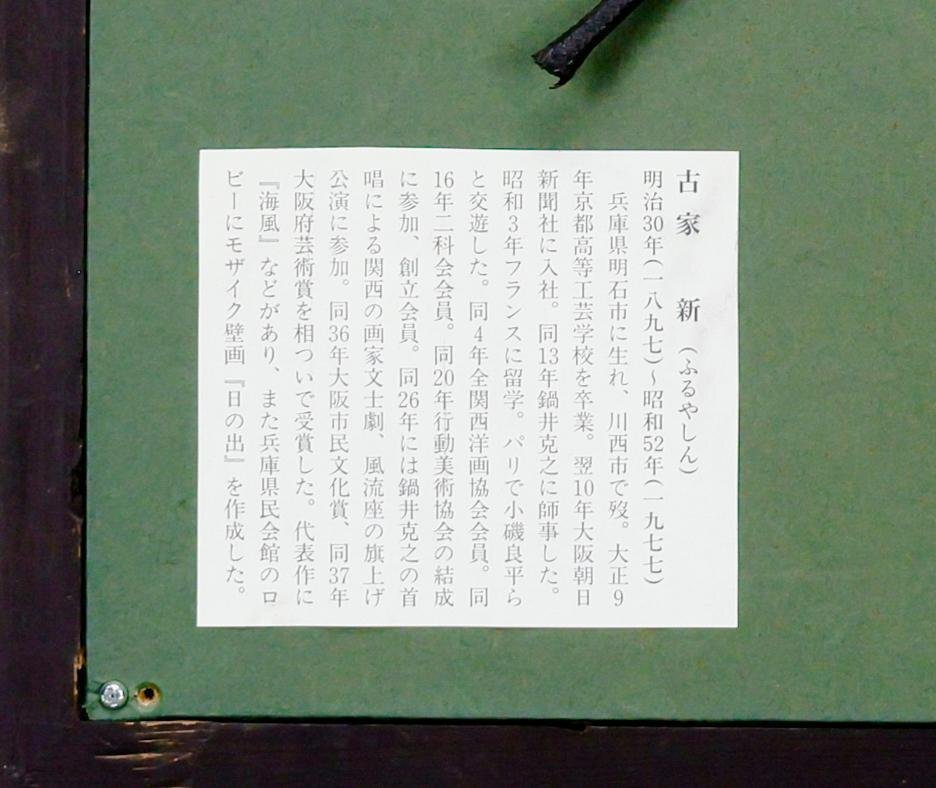 古家　新（ふるやしん）
明治30年（一八九七）～昭和52年（一九七七）
兵庫県明石市に生れ、川西市で歿。大正9
年京都高等工芸学校を卒業。翌10年大阪朝日
新聞社に入社。同13年鍋井克之に師事した。
昭和3年フランスに留学。パリで小磯良平ら
と交遊した。同4年全関西洋画協会会員。同
16年二科会会員。同20年行動美術協会の結成
に参加、創立会員。同26年には鍋井克之の首
唱による関西の画家文士劇、風流座の旗上げ
公演に参加。同36年大阪市民文化賞、同37年
大阪府芸術賞を相ついで受賞した。代表作に
『海風』などがあり、また兵庫県民会館のロ
ビーにモザイク壁画『日の出』を作成した。